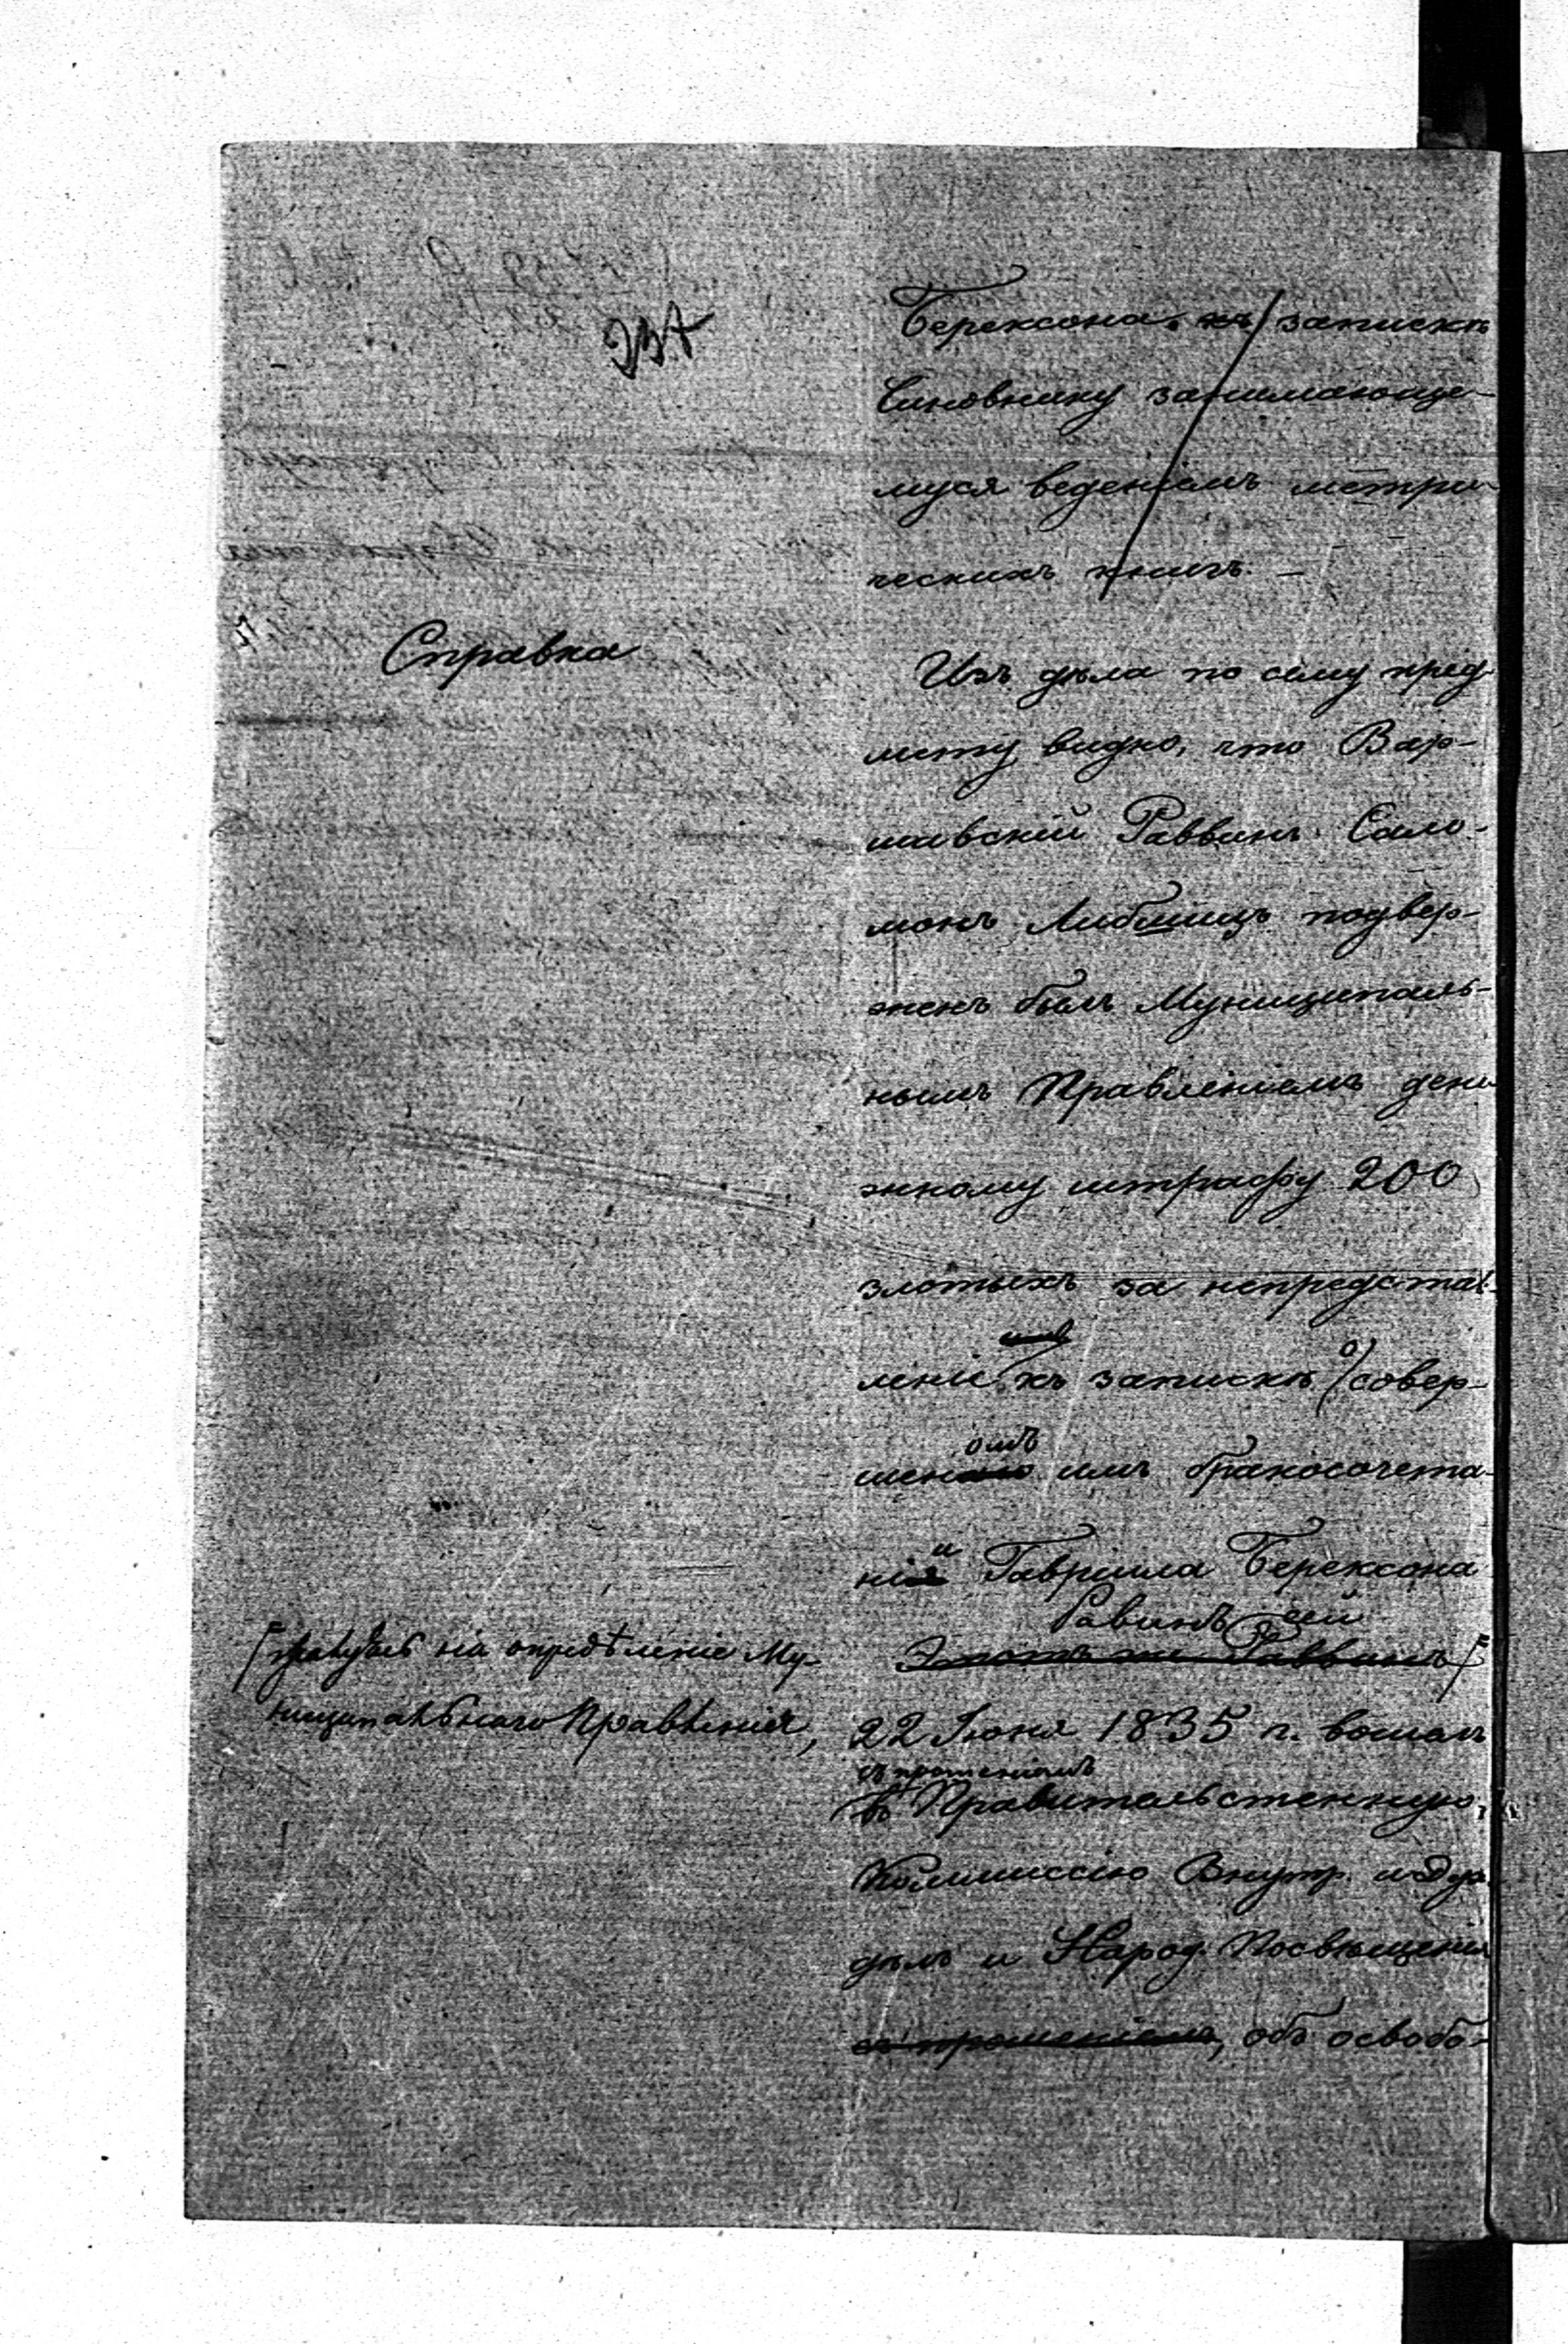 237
Берексона. къ записки
Чиновнику занимающе-
муся веденіемъ метри-
ческихъ книгъ. —
Справка
Изъ дѣла по сему пред-
мету видно, что Вар-
шавскій Раввинъ Сало-
монъ Либшицъ подвер-
женъ былъ Муниципаль-
нымъ Правленіемъ дене-
жному штрафу 200
злотыхъ за непредстав-
леніе къ записки о совер-
шенномъ имъ бракосочета-
ніи Гавріила Берексона
Равинъ сей
Этотъ же Раввинъ
на опредѣленіе Му-
ниципальнаго Правленія,
22 Іюня 1835 г. вошелъ
съ прошеніемъ
въ Правительственную
Коммиссію Внутр. и Дух.
дѣлъ и Народ. Посвѣщенія
съ прошеніемъ, объ освобо-